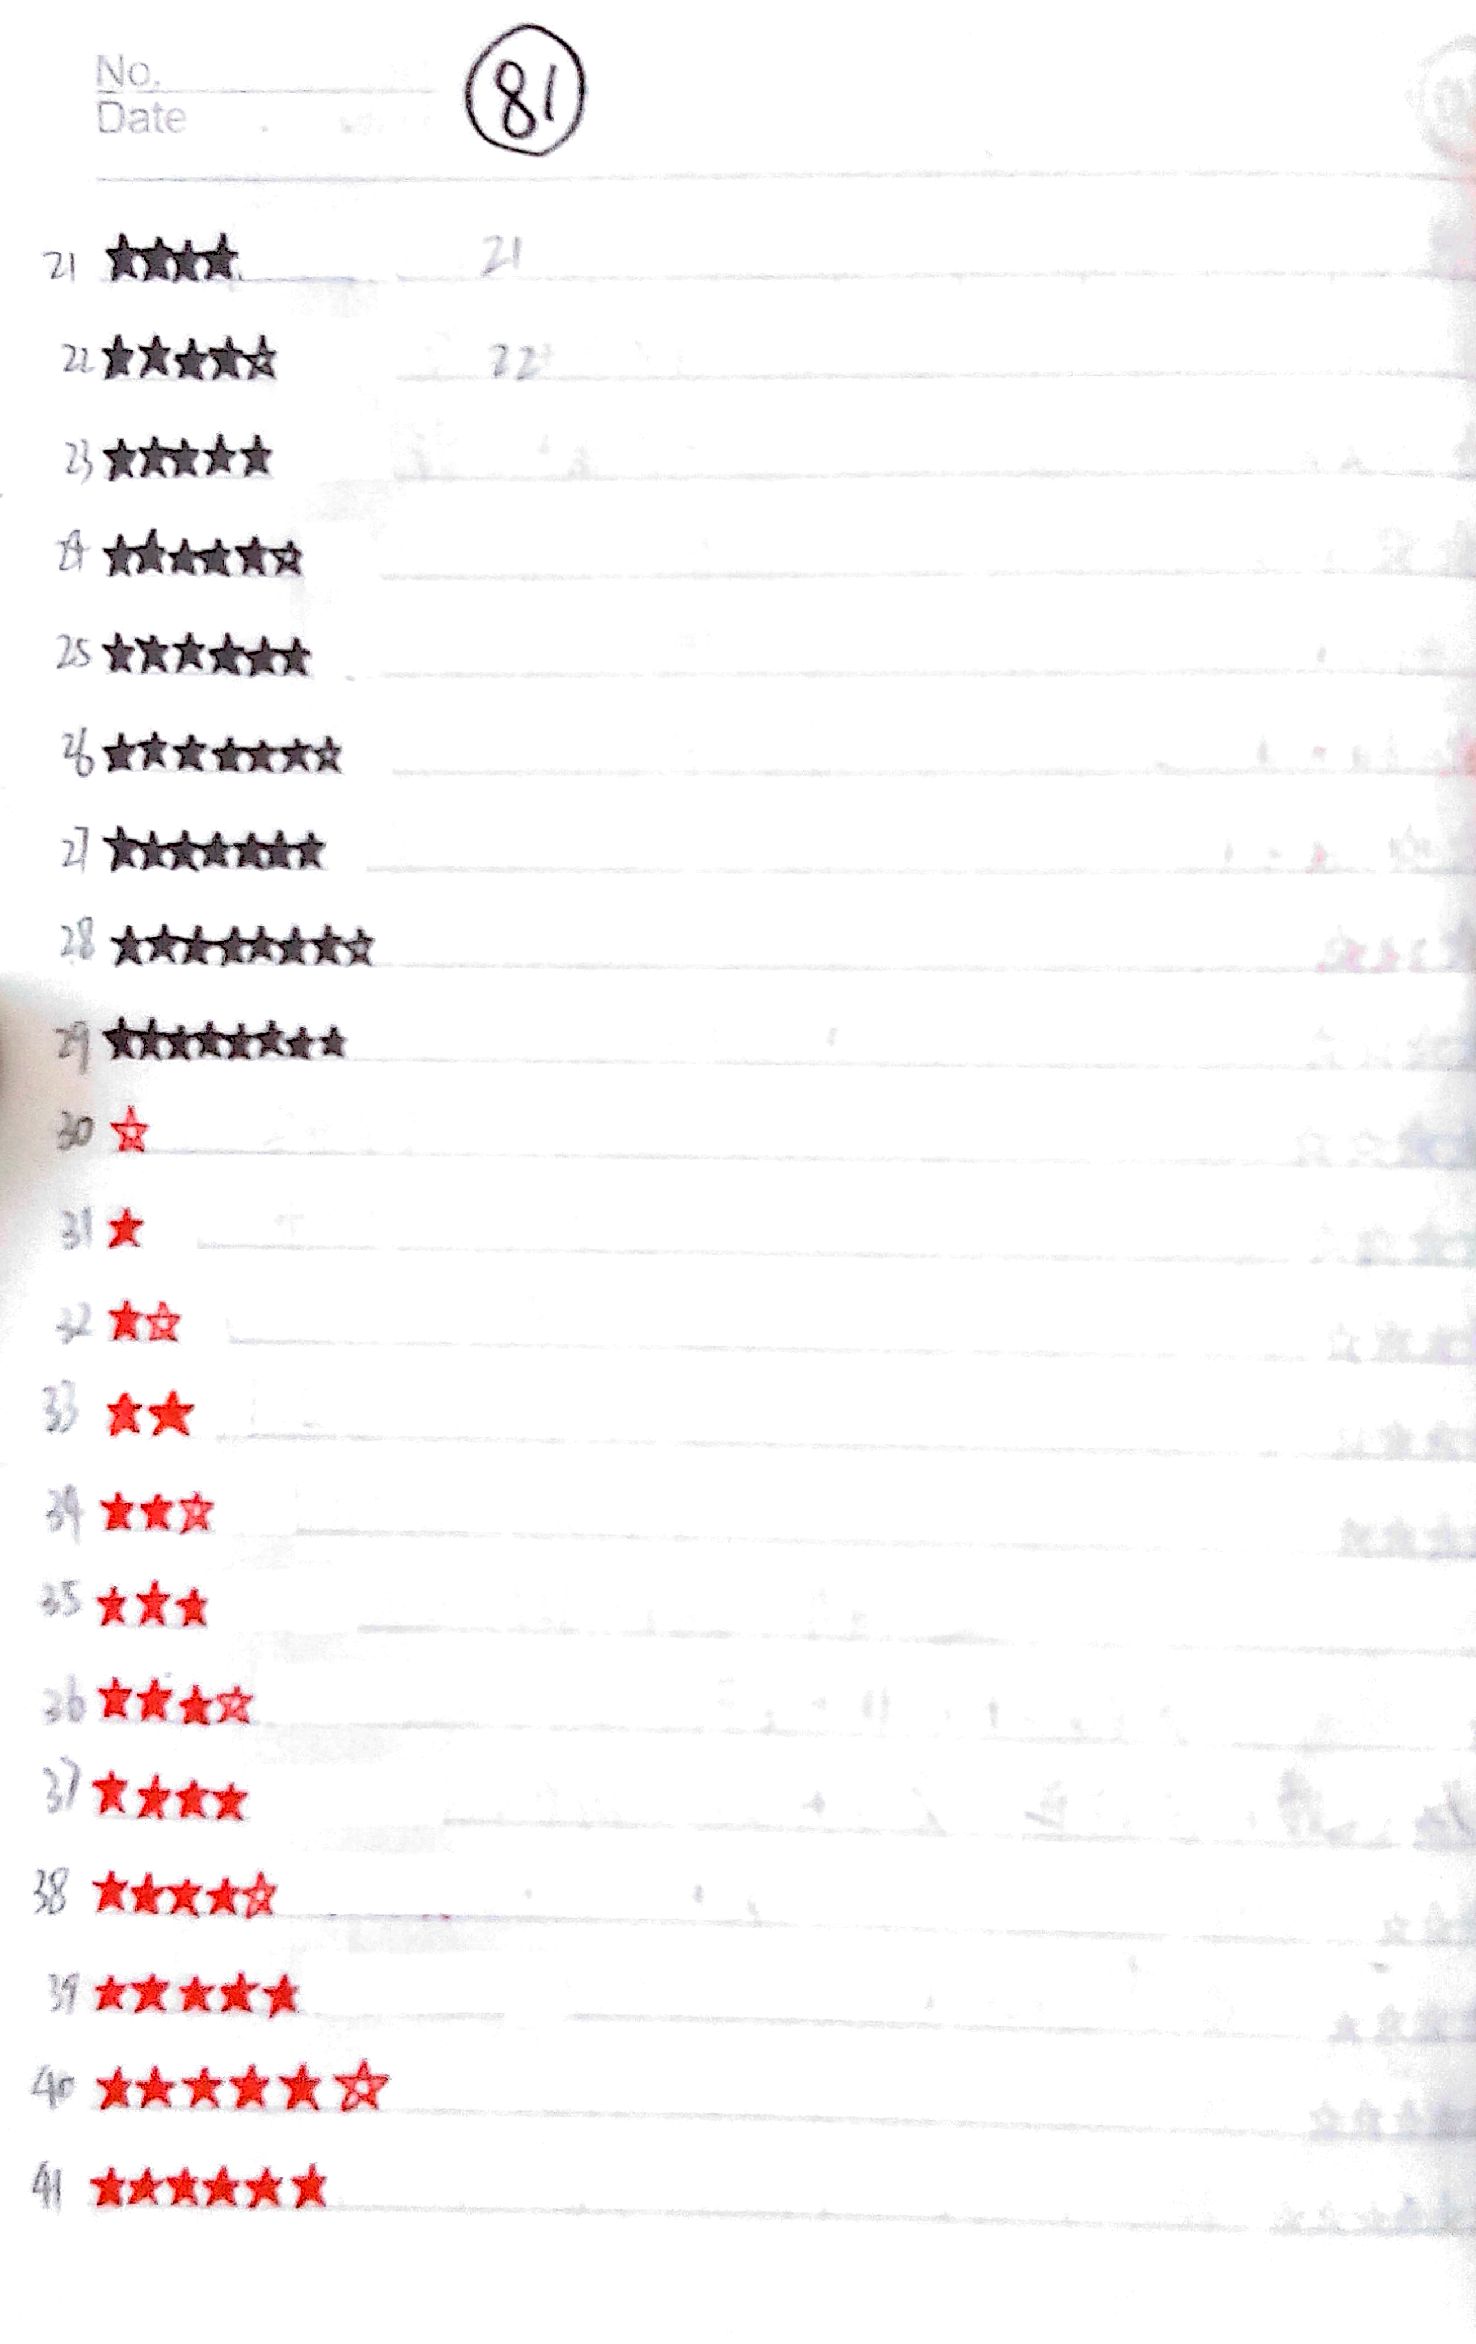 No. 81
Date
21 ★★★★ 21
22 ★★★★☆ 22
23 ★★★★★
24 ★★★★★☆
25 ★★★★★★
26 ★★★★★★☆
27 ★★★★★★★
28 ★★★★★★★☆
29 ★★★★★★★★
30 ☆
31 ★
32 ★☆
33 ★★
34 ★★☆
35 ★★★
36 ★★★☆
37 ★★★★
38 ★★★★☆
39 ★★★★★
40 ★★★★★☆
41 ★★★★★★